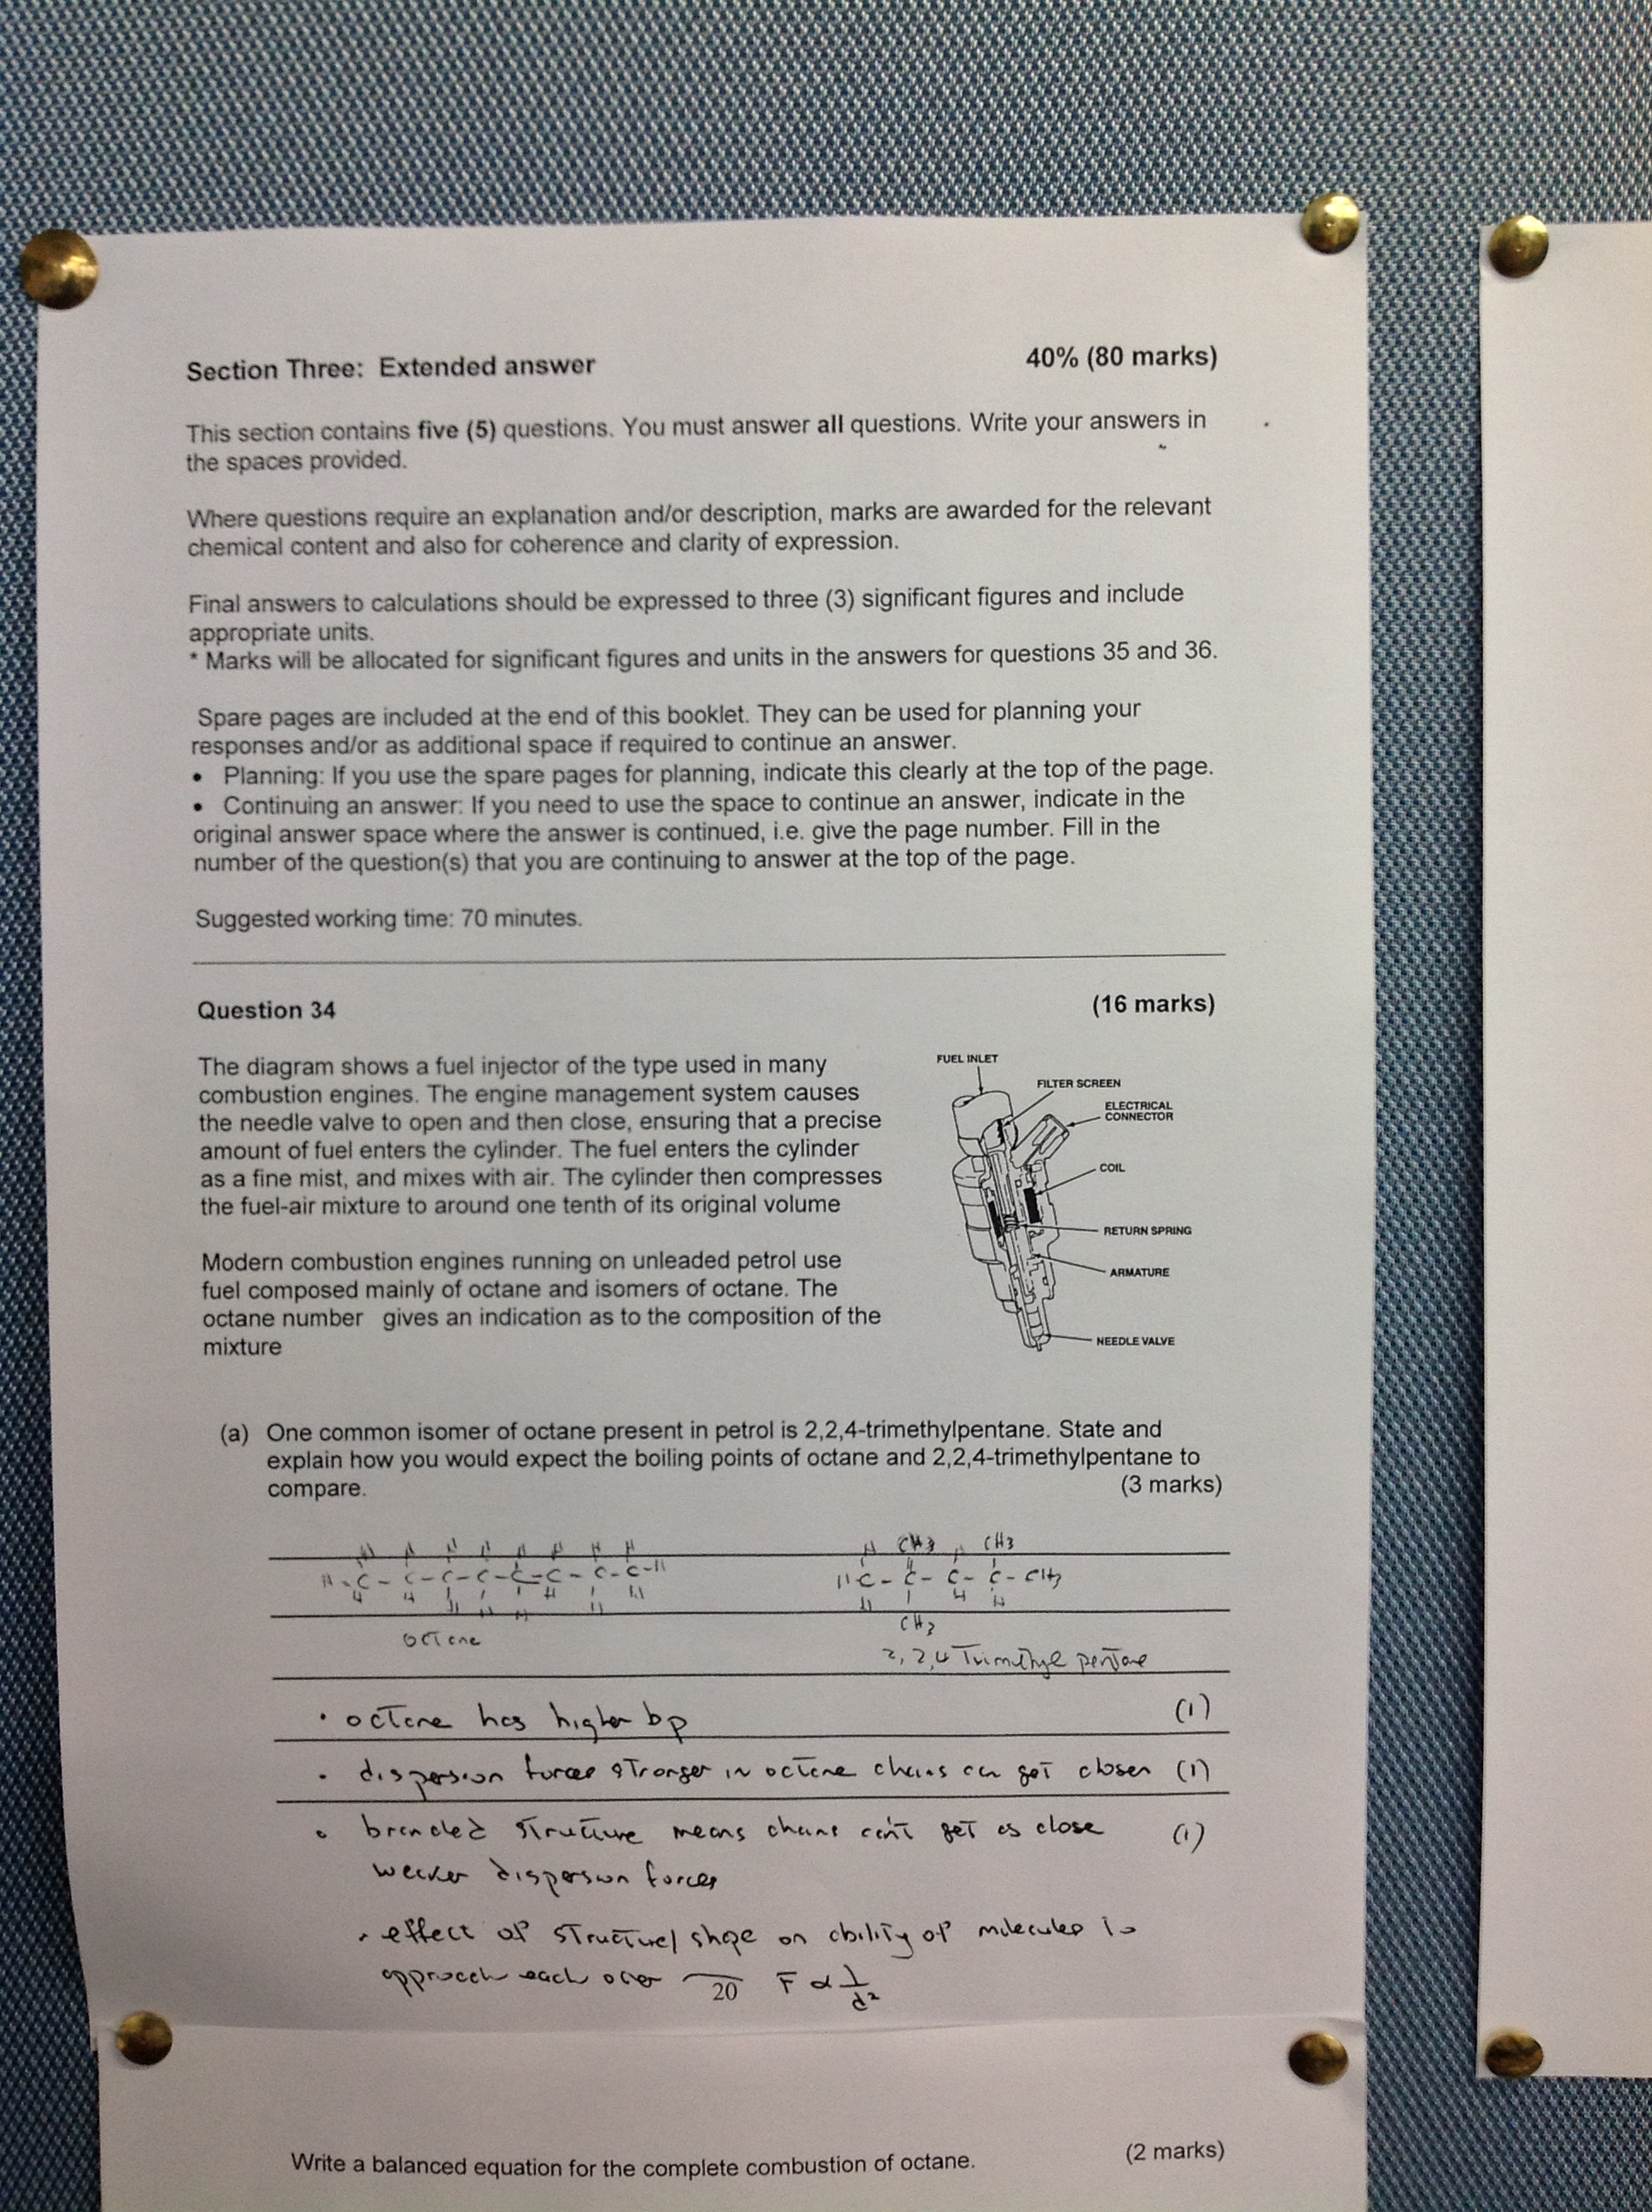 Section Three: Extended answer 40% (80 marks)
This section contains five (5) questions. You must answer all questions. Write your answers in
the spaces provided.
Where questions require an explanation and/or description, marks are awarded for the relevant
chemical content and also for coherence and clarity of expression.
Final answers to calculations should be expressed to three (3) significant figures and include
appropriate units.
* Marks will be allocated for significant figures and units in the answers for questions 35 and 36.
Spare pages are included at the end of this booklet. They can be used for planning your
responses and/or as additional space if required to continue an answer.
• Planning: If you use the spare pages for planning, indicate this clearly at the top of the page.
• Continuing an answer: If you need to use the space to continue an answer, indicate in the
original answer space where the answer is continued, i.e. give the page number. Fill in the
number of the question(s) that you are continuing to answer at the top of the page.
Suggested working time: 70 minutes.
Question 34 (16 marks)
The diagram shows a fuel injector of the type used in many
combustion engines. The engine management system causes
the needle valve to open and then close, ensuring that a precise
amount of fuel enters the cylinder. The fuel enters the cylinder
as a fine mist, and mixes with air. The cylinder then compresses
the fuel-air mixture to around one tenth of its original volume
Modern combustion engines running on unleaded petrol use
fuel composed mainly of octane and isomers of octane. The
octane number gives an indication as to the composition of the
mixture
FUEL INLET
FILTER SCREEN
ELECTRICAL
CONNECTOR
COIL
RETURN SPRING
ARMATURE
NEEDLE VALVE
(a) One common isomer of octane present in petrol is 2,2,4-trimethylpentane. State and
explain how you would expect the boiling points of octane and 2,2,4-trimethylpentane to
compare. (3 marks)
H H H H H H H H
H - C - C - C - C - C - C - C - C - H
H H H H H H H H
octane
H CH3 H CH3
H C - C - C - C - CH3
H H H
CH3
2, 2,4 Trimethyl pentane
• octane has higher bp (1)
• dispersion forces stronger in octane chains can get closer (1)
• branched structure means chains can't get as close (1)
weaker dispersion forces
• effect of structure/ shape on ability of molecules to
approach each other F ∝ 1/d²
20
Write a balanced equation for the complete combustion of octane. (2 marks)